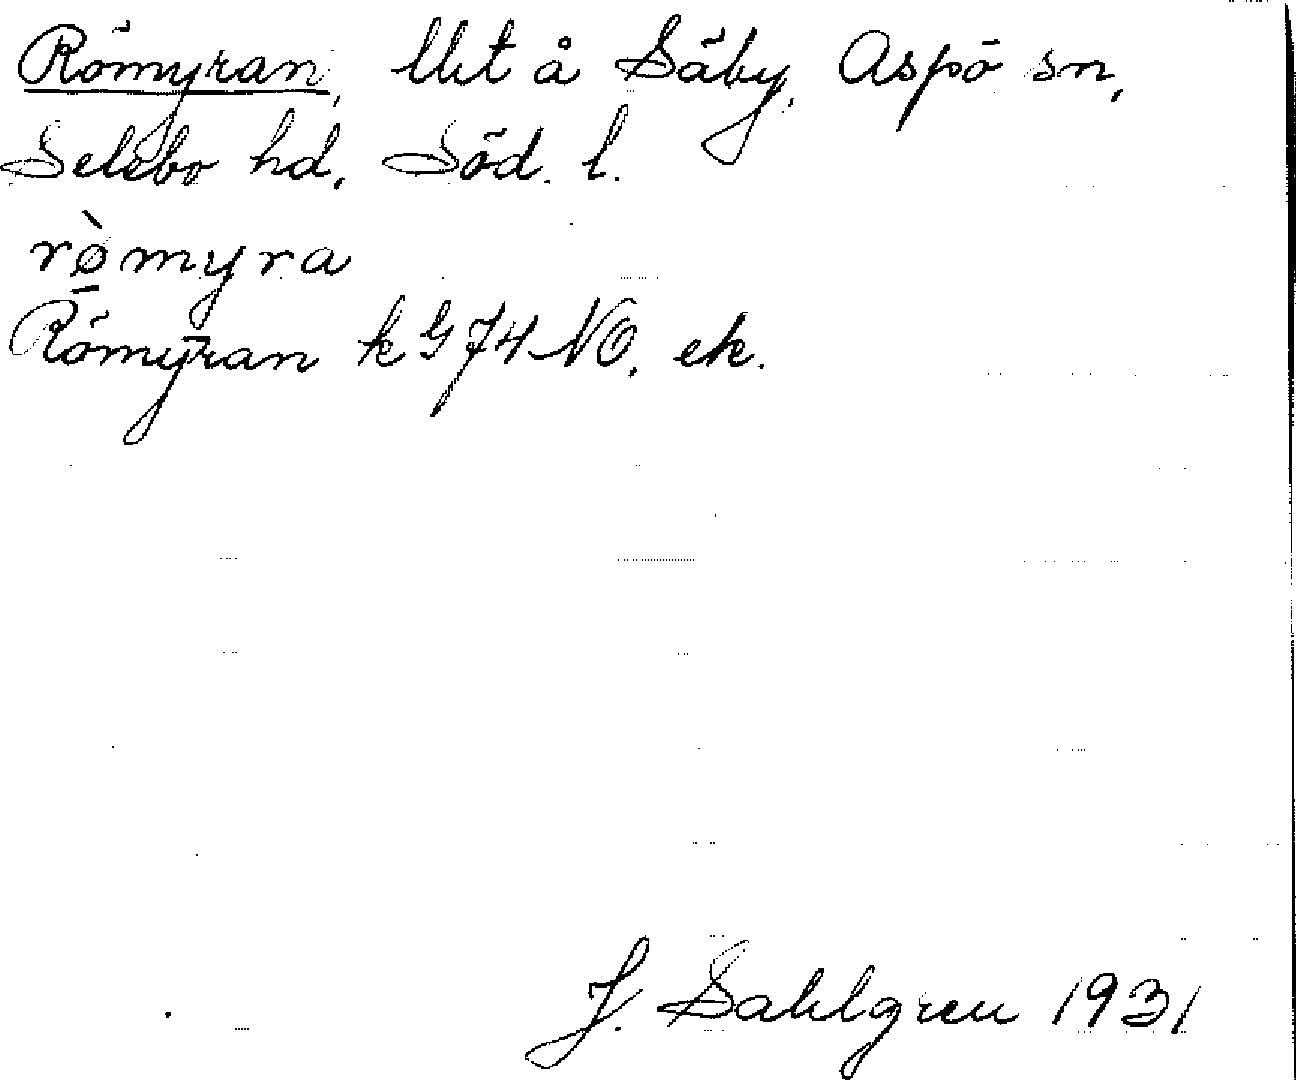 Römyran, llst å Säby, Aspö sn,
Selebo hd, Söd. l.
rø̀myra
Römyran k G74 NO, ek.
J. Sahlgren 1931